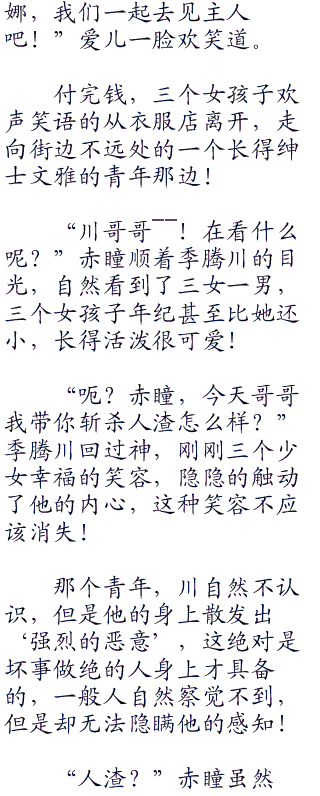 娜，我们一起去见主人
吧！”爱儿一脸欢笑道。
付完钱，三个女孩子欢
声笑语的从衣服店离开，走
向街边不远处的一个长得绅
士文雅的青年那边！
“川哥哥——！在看什么
呢？”赤瞳顺着季腾川的目
光，自然看到了三女一男，
三个女孩子年纪甚至比她还
小，长得活泼很可爱！
“呃？赤瞳，今天哥哥
我带你斩杀人渣怎么样？”
季腾川回过神，刚刚三个少
女幸福的笑容，隐隐的触动
了他的内心，这种笑容不应
该消失！
那个青年，川自然不认
识，但是他的身上散发出
‘强烈的恶意’，这绝对是
坏事做绝的人身上才具备
的，一般人自然察觉不到，
但是却无法隐瞒他的感知！
“人渣？”赤瞳虽然